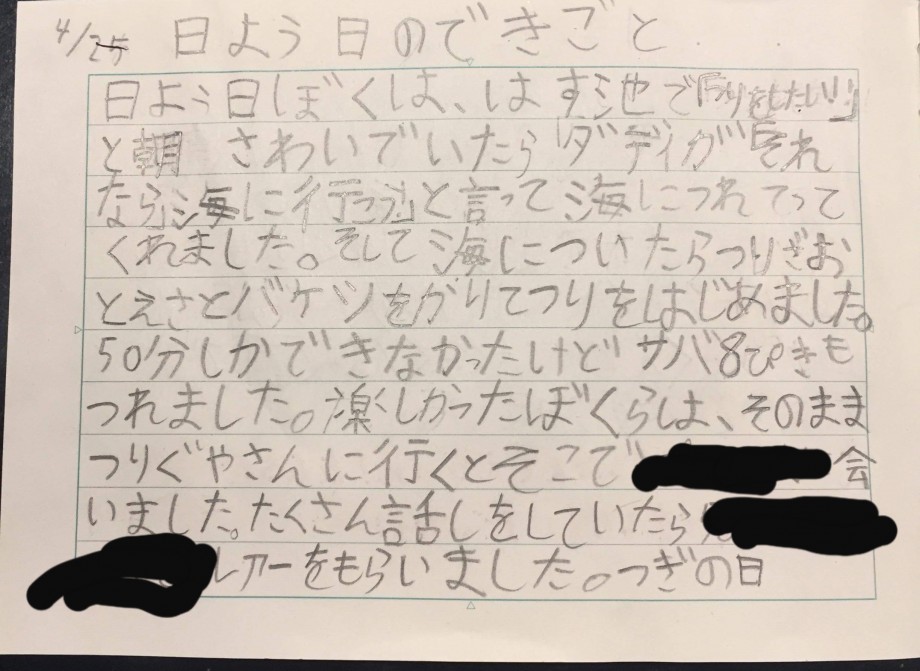 4/25 日よう日のできごと
日よう日ぼくは、はす池で「つりをしたい!」
と朝 さわいでいたらダディが「それ
なら海に行こう」と言って海につれてって
くれました。そして海についたらつりざお
とえさとバケツをかりてつりをはじめました。
50分しかできなかったけどサバ8ぴきも
つれました。楽しかったぼくらは、そのまま
つりぐやさんに行くとそこで 会
いました。たくさん話しをしていたら
ルアーをもらいました。つぎの日